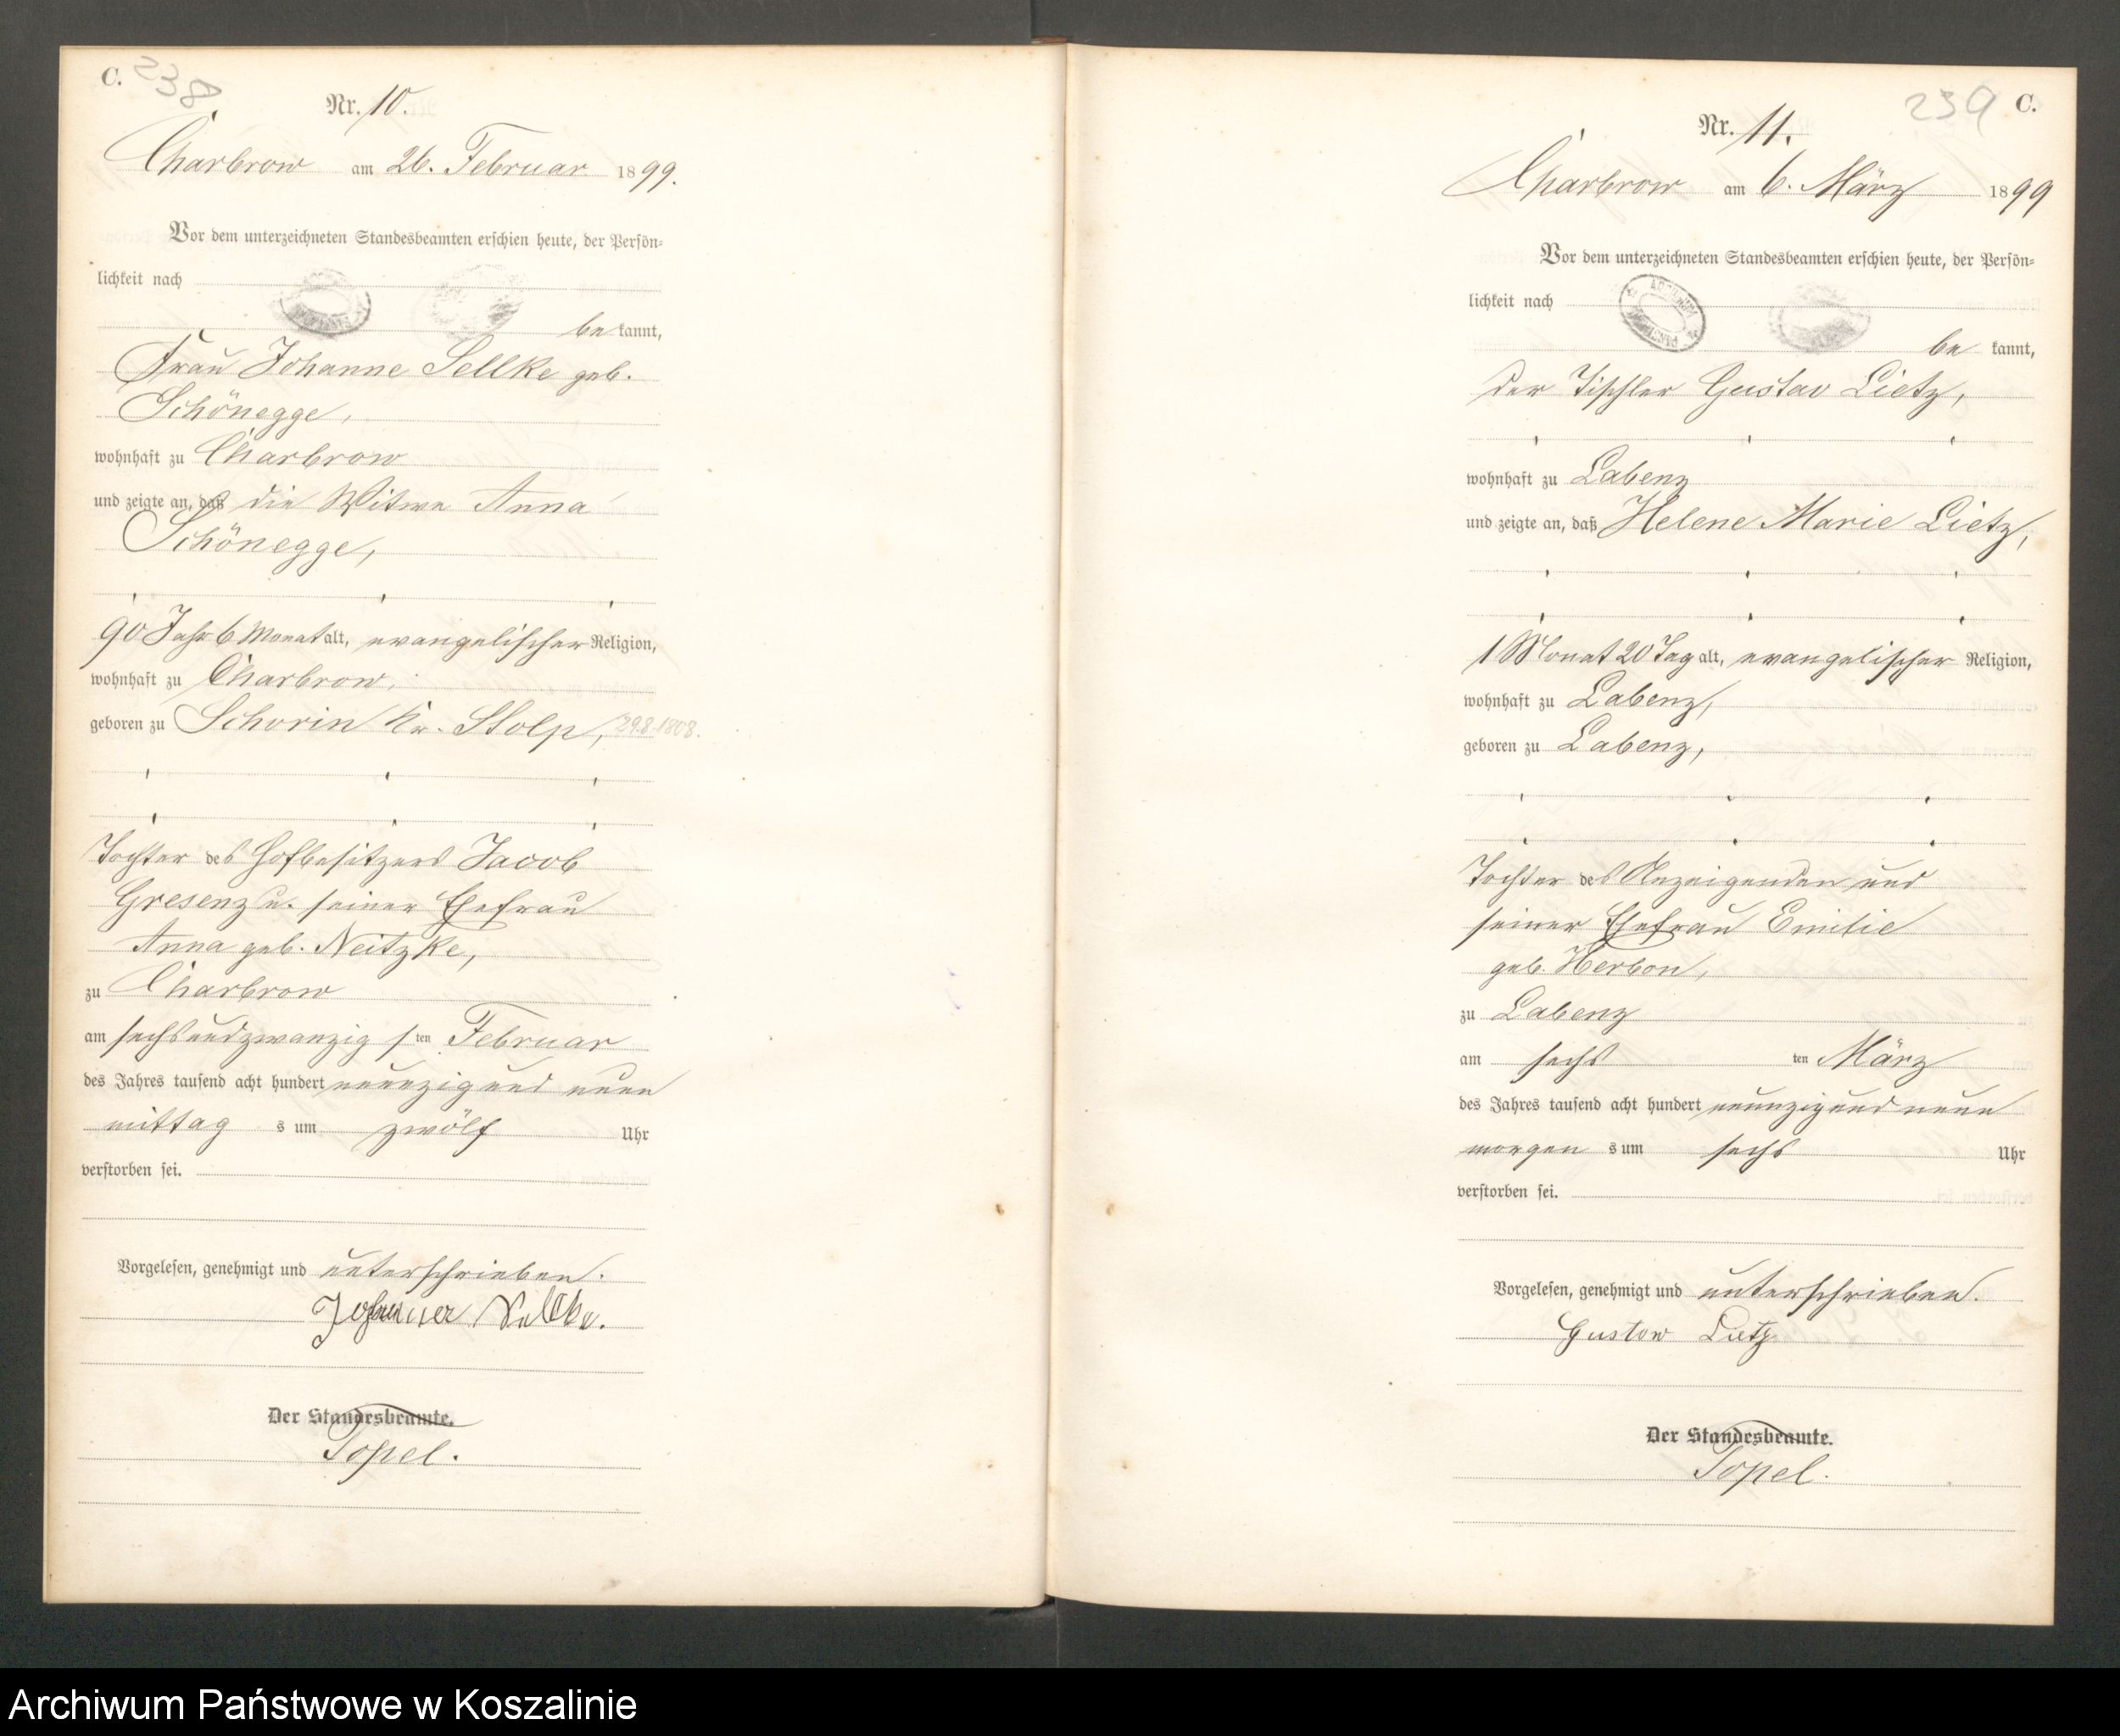 C. 238
Nr. 10.
Charbrow am 26. Februar 1899.
Vor dem unterzeichneten Standesbeamten erschien heute, der Persön-
lichkeit nach
bekannt,
Frau Johanne Sellke geb.
Schönegge,
wohnhaft zu Charbrow
und zeigte an, daß die Witwe Anna
Schönegge,
90 Jahr 6 Monat alt, evangelischer Religion,
wohnhaft zu Charbrow,
geboren zu Schorin Kr. Stolp, 29.8.1808.
Tochter des Hofbesitzers Jacob
Gresenz u. seiner Ehefrau
Anna geb. Neitzke,
zu Charbrow
am sechsundzwanzigsten Februar
des Jahres tausend acht hundert neunzig und neun
mittags um zwölf Uhr
verstorben sei.
Vorgelesen, genehmigt und unterschrieben.
Johanne Sellke.
Der Standesbeamte.
Topel.
239 C.
Nr. 11.
Charbrow am 6. März 1899
Vor dem unterzeichneten Standesbeamten erschien heute, der Persön-
lichkeit nach
bekannt,
der Tischler Gustav Lietz,
wohnhaft zu Labenz
und zeigte an, daß Helene Marie Lietz,
1 Monat 20 Tag alt, evangelischer Religion,
wohnhaft zu Labenz,
geboren zu Labenz,
Tochter des Anzeigenden und
seiner Ehefrau Emilie
geb. Herbon,
zu Labenz
am sechsten März
des Jahres tausend acht hundert neunzig und neun
morgens um sechs Uhr
verstorben sei.
Vorgelesen, genehmigt und unterschrieben.
Gustow Lietz
Der Standesbeamte.
Topel.
Archiwum Państwowe w Koszalinie